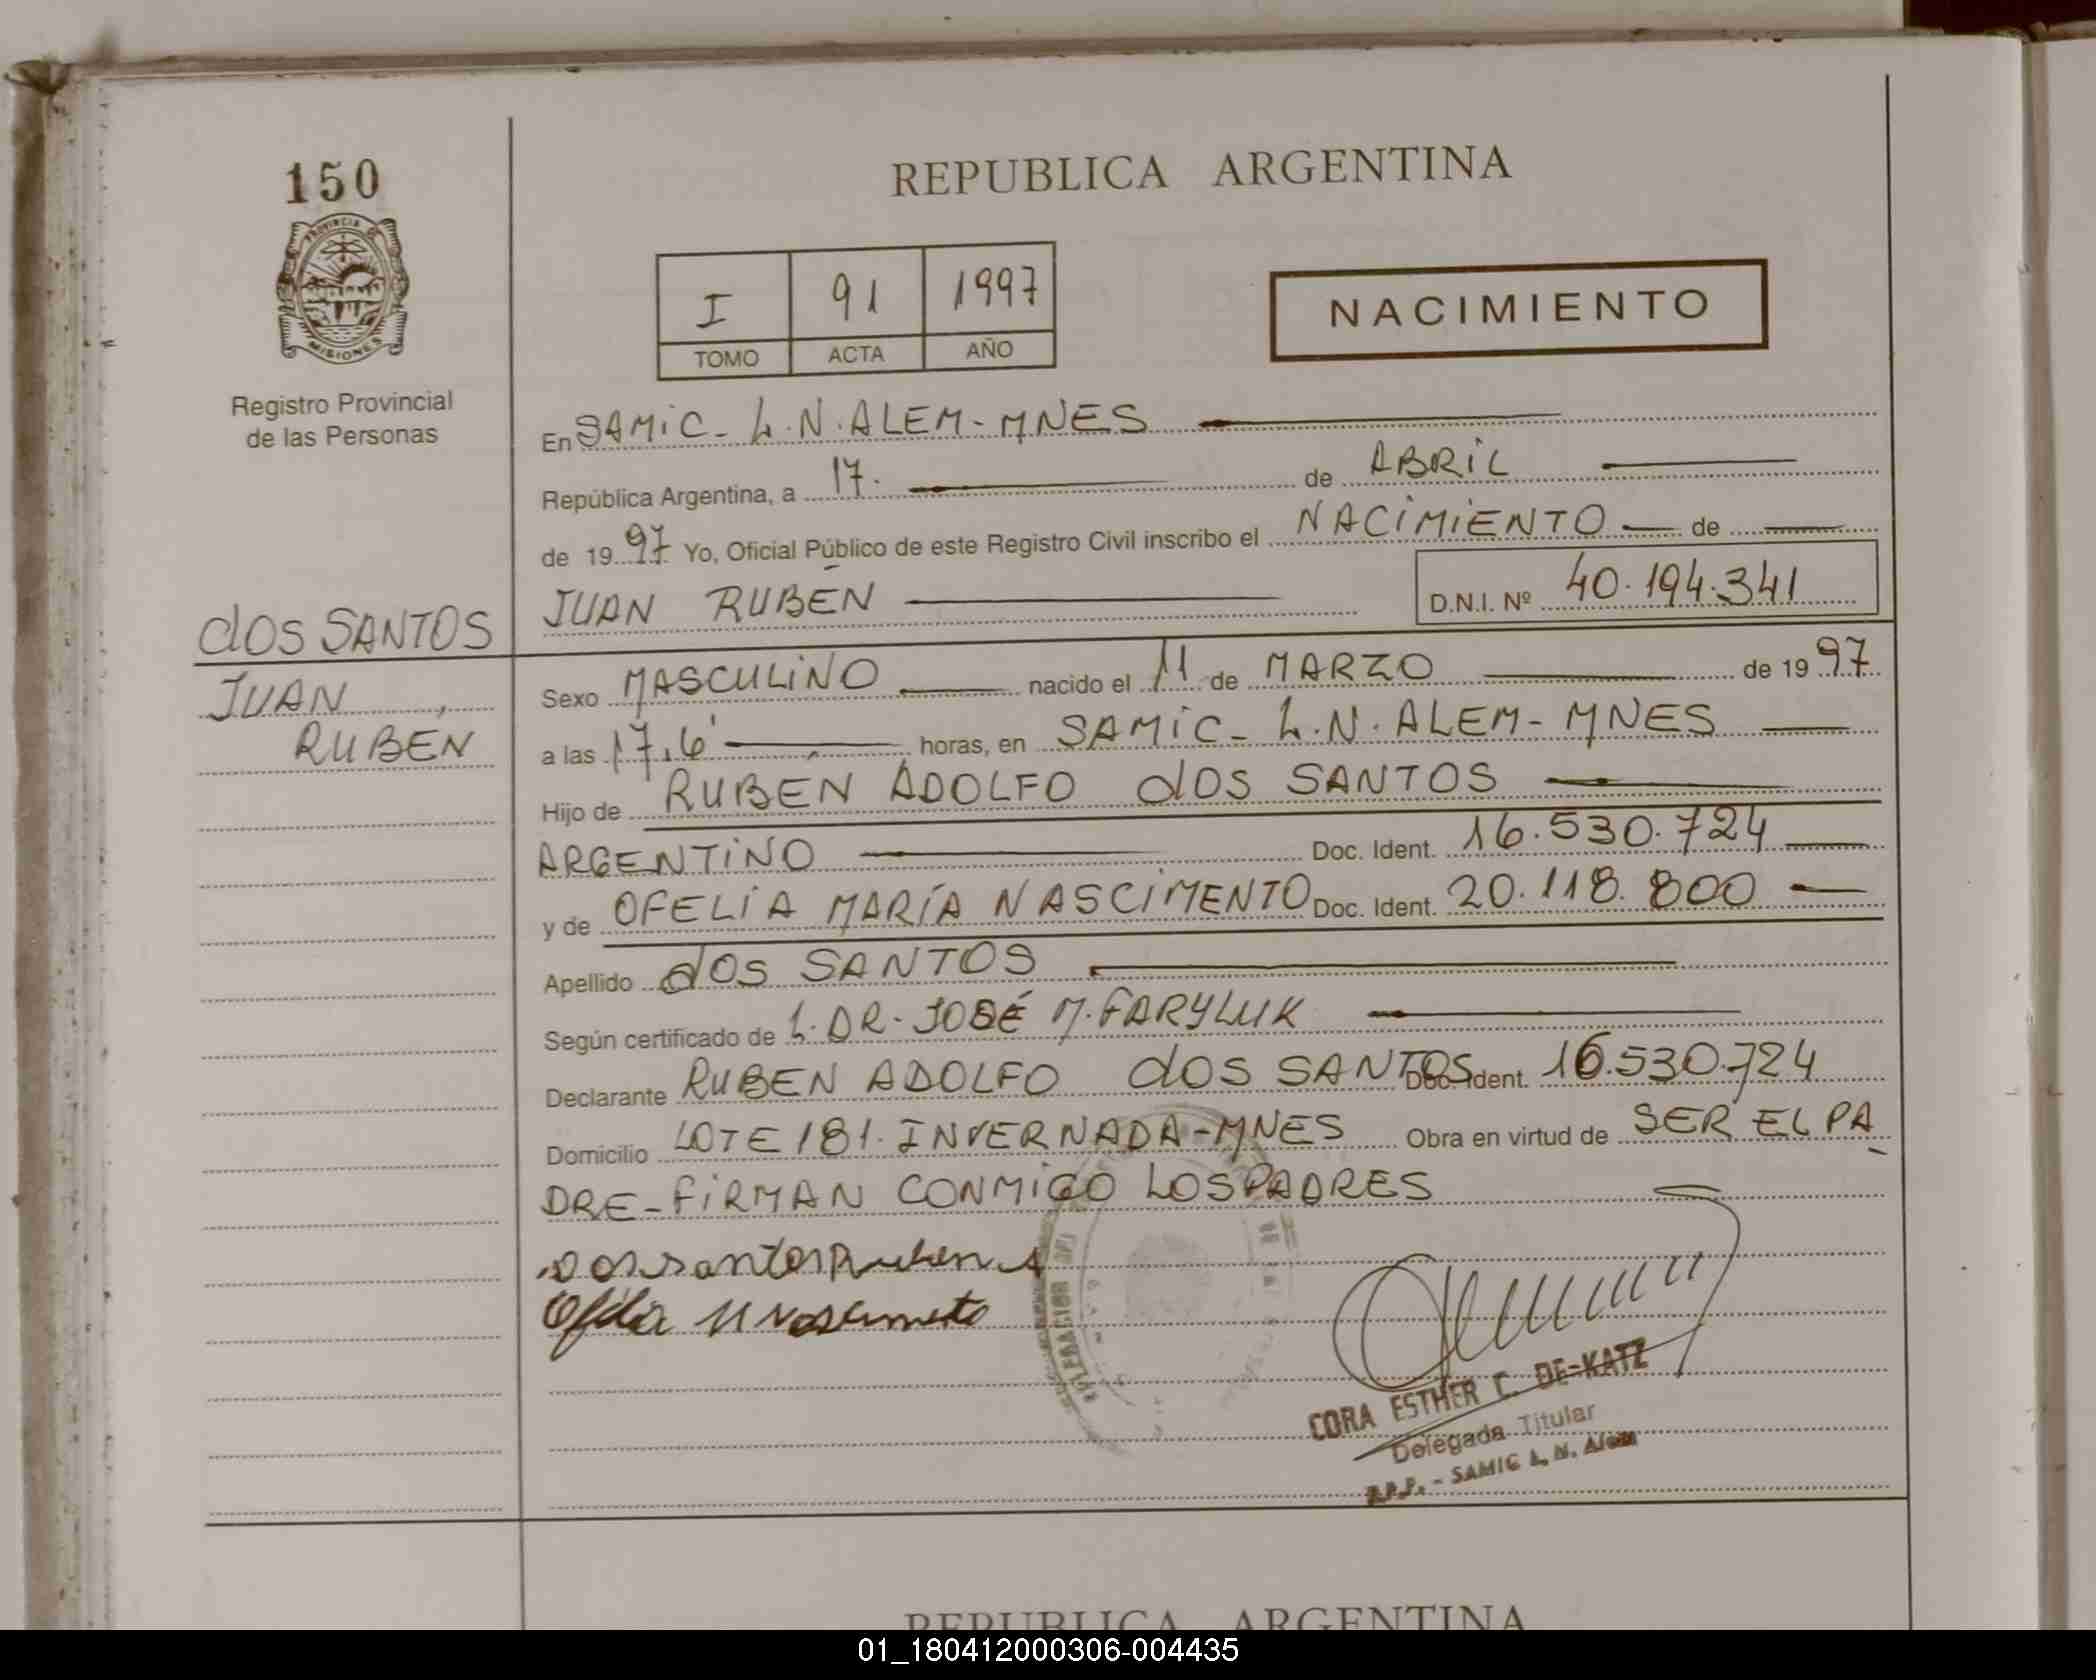 150
REPUBLICA ARGENTINA
PROVINCIA DE
MISIONES
I 91 1997
TOMO ACTA AÑO
NACIMIENTO
Registro Provincial
de las Personas
En SAMIC - L.N. ALEM - MNES
República Argentina, a 17. de ABRIL
de 1997 Yo, Oficial Público de este Registro Civil inscribo el NACIMIENTO de
JUAN RUBÉN D.N.I. Nº 40.194.341
dos SANTOS
JUAN
RUBÉN
Sexo MASCULINO nacido el 11 de MARZO de 1997
a las 17,6' horas, en SAMIC - L.N. ALEM - MNES
Hijo de RUBÉN ADOLFO dos SANTOS
ARGENTINO Doc. Ident. 16.530.724
y de OFELIA MARÍA NASCIMENTO Doc. Ident. 20.118.800
Apellido dos SANTOS
Según certificado de L. DR. JOSÉ M. FARYLUK
Declarante RUBEN ADOLFO dos SANTOS Doc. Ident. 16.530.724
Domicilio LOTE 181. INVERNADA - MNES Obra en virtud de SER EL PA
DRE - FIRMAN CONMIGO LOS PADRES
Dos santos Ruben A
Ofelia M Nascimento
CORA ESTHER C. DE KATZ
Delegada Titular
R.P.P. - SAMIC L. N. Alem
REPUBLICA ARGENTINA
01_180412000306-004435